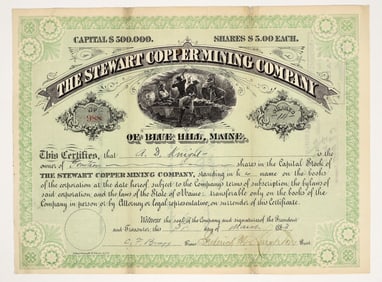 CAPITAL $500.000. SHARES $5.00 EACH.
THE STEWART COPPER MINING COMPANY
388
OF BLUE HILL, MAINE.
This Certifies, that A. D. Knight is the
owner of shares in the Capital Stock of
THE STEWART COPPER MINING COMPANY, standing in h on the books
of the corporation at the date hereof subject to the Company's terms of subscription, the by laws of
said corporation, and the laws of the State of Maine; transferable only on the books of the
Company in person or by Attorney or legal representative, on surrender of this Certificate.
Witness the seal of the Company and signatures of the President
and Treasurer, this day of 188